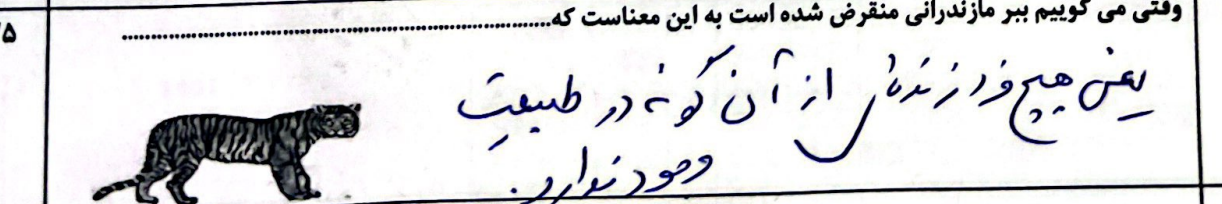 وقتی می گوییم ببر مازندرانی منقرض شده است به این معناست که............................................................
یعنی هیچ فرد زنده‌ای از آن گونه در طبیعت
وجود ندارد.